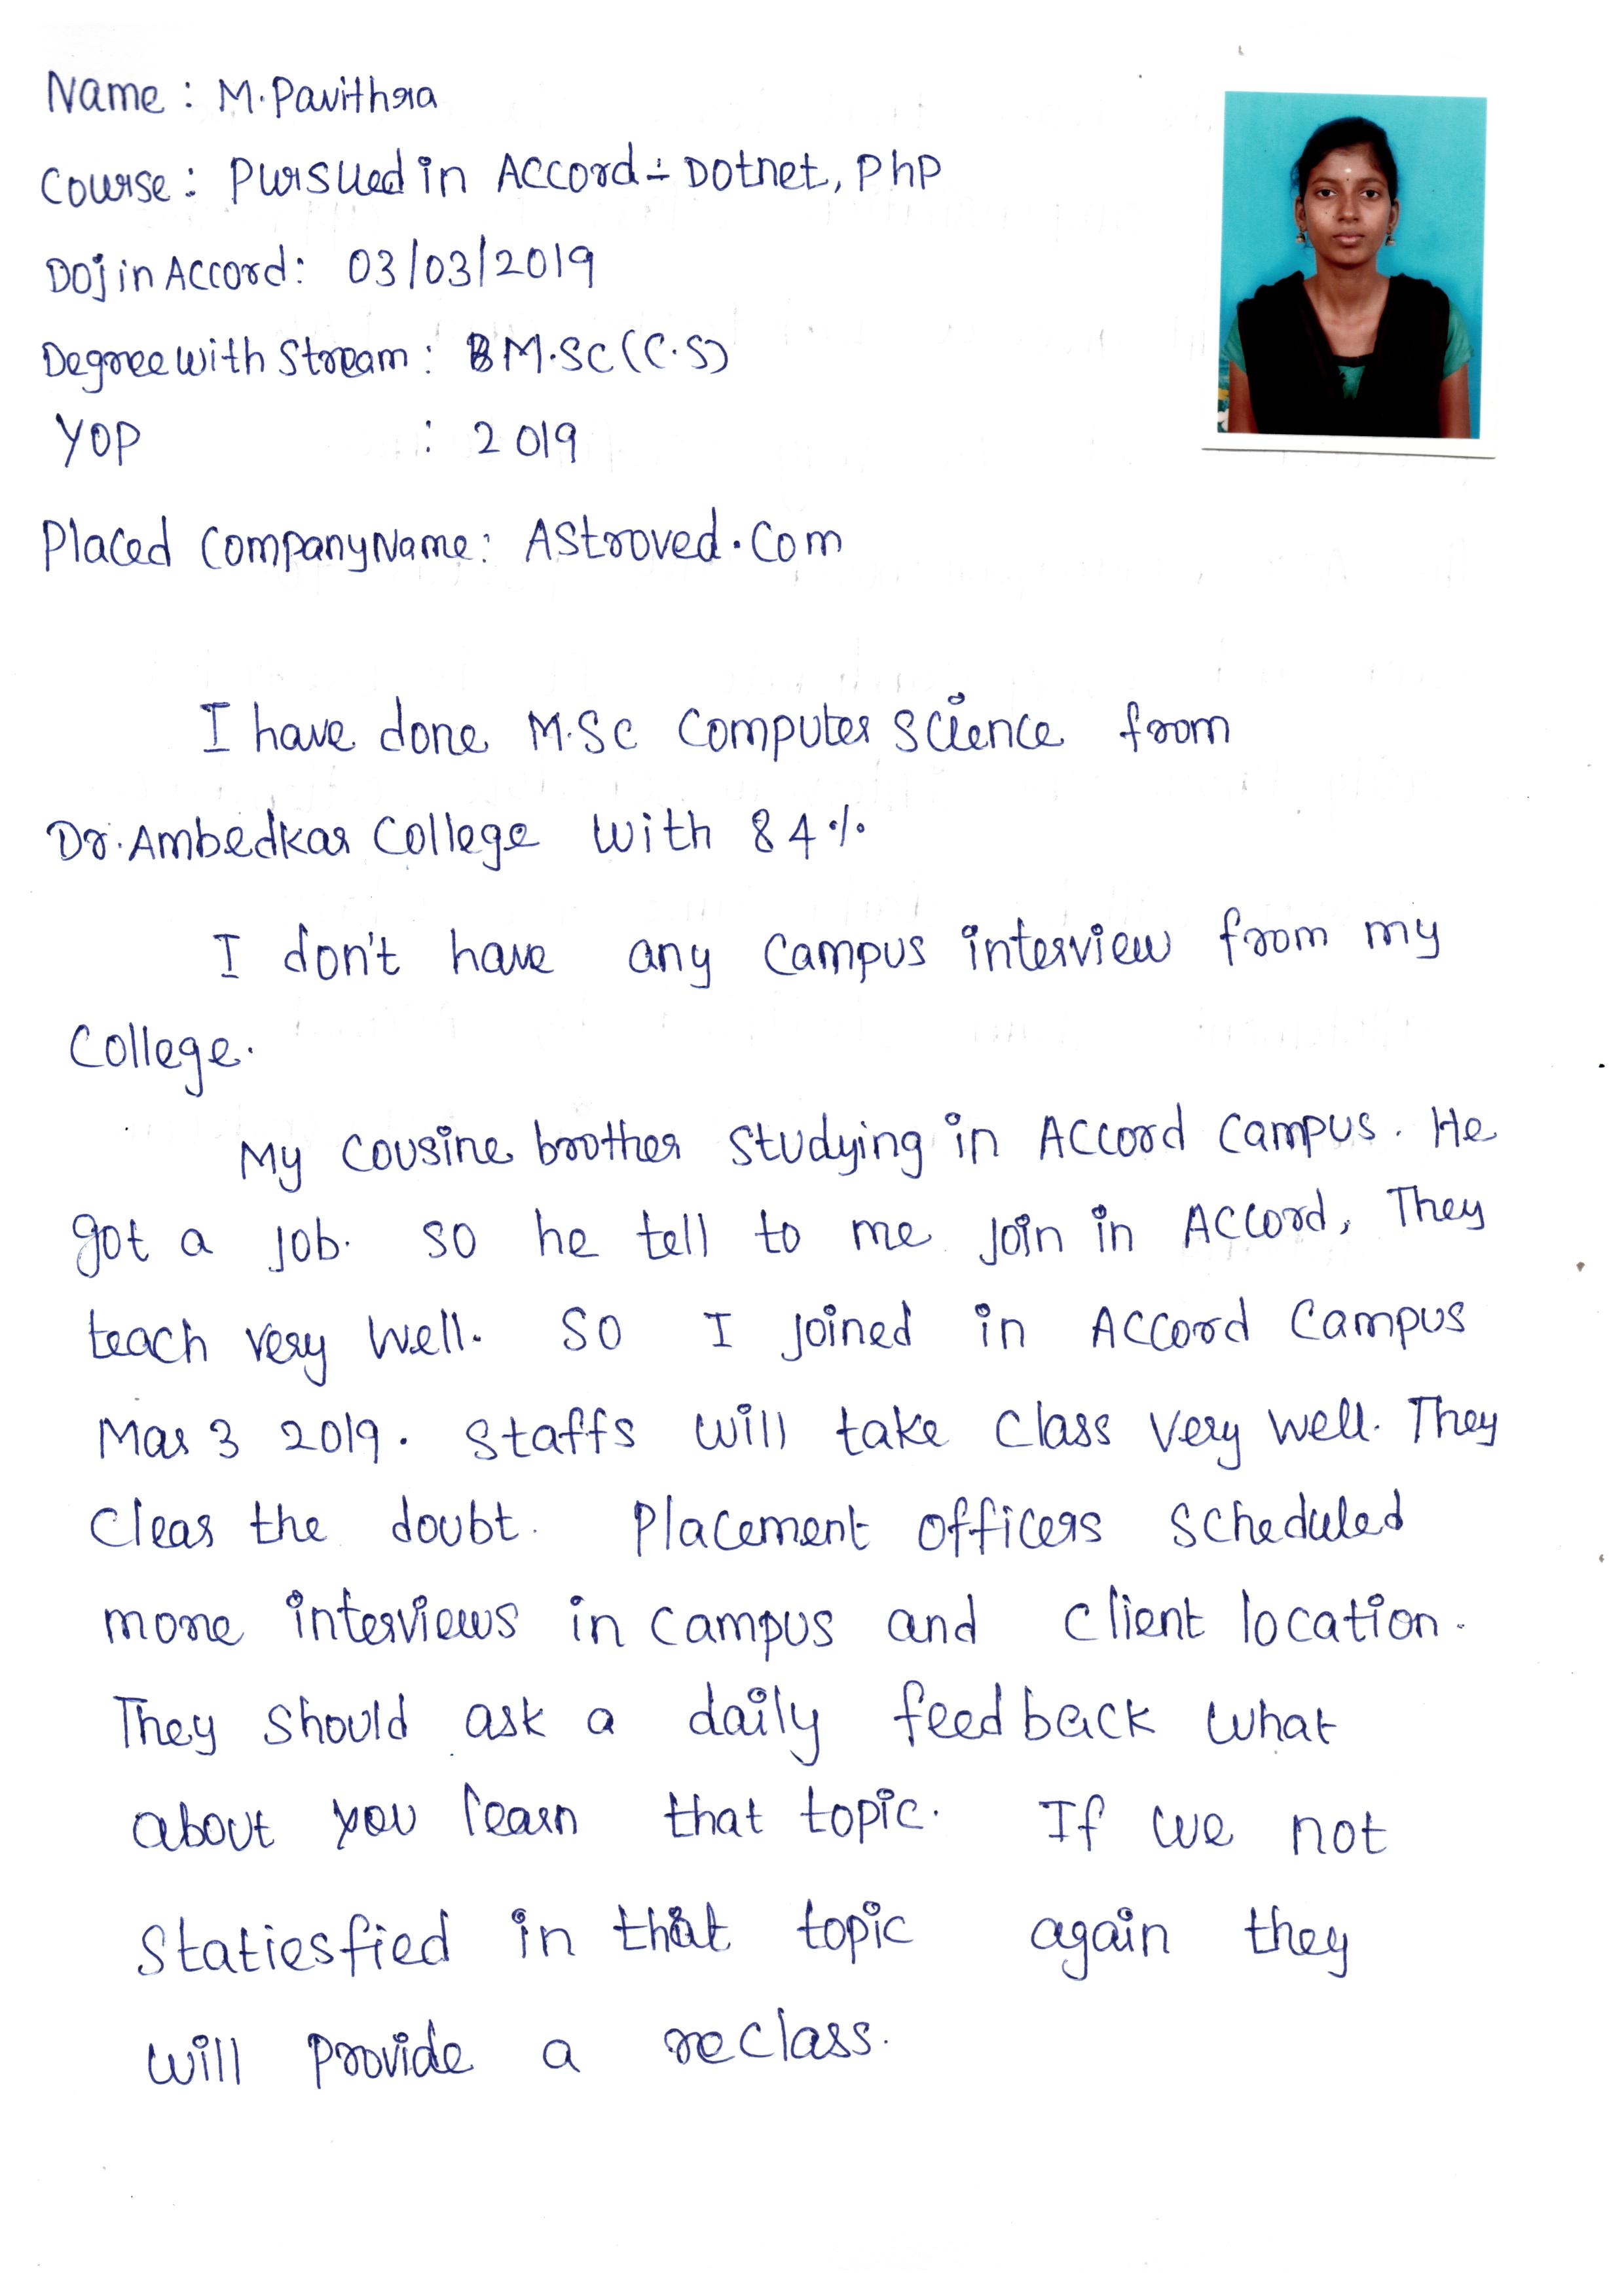 Name : M.Pavithra
Course : Pursued in Accord :- Dotnet, PhP
Doj in Accord : 03/03/2019
Degree with Stream : M.SC (C.S)
YOP : 2019
Placed Company Name : AStroved.Com
I have done M.SC Computer Science from
Dr. Ambedkar College with 84%
I don't have any Campus interview from my
College.
My Cousine brother Studying in Accord Campus. He
got a job. so he tell to me join in Accord, They
teach very well. So I joined in Accord Campus
Mar 3 2019. Staffs will take Class very well. They
Clear the doubt. Placement officers Scheduled
more interviews in Campus and Client location.
They should ask a daily feedback what
about you learn that topic. If we not
Statiesfied in that topic again they
will provide a reclass.